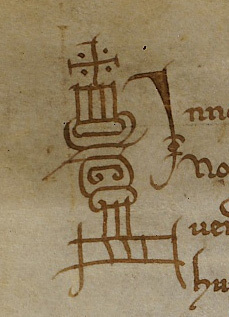 Inn
No
ver
hu